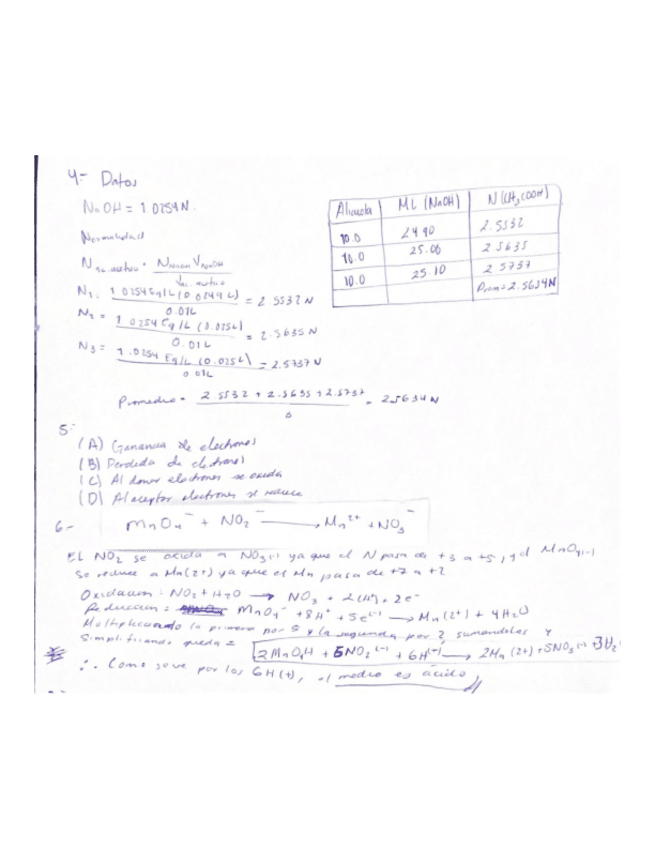 4- Datos
NaOH = 1.0254N.
Normalidad
N ac. acético = N NaOH V NaOH / V ac. acético
N1 = 1.0254 Eq/L (0.0249 L) / 0.01L = 2.5532 N
N2 = 1.0254 Eq/L (0.025L) / 0.01L = 2.5635 N
N3 = 1.0254 Eq/L (0.025L) / 0.01L = 2.5737 N
Promedio = 2.5532 + 2.5635 + 2.5737 / 3 = 2.5634N
Alicuota ML (NaOH) N (CH3COOH)
10.0 24.90 2.5532
10.0 25.00 2.5635
10.0 25.10 2.5737
Prom = 2.5634N
5-
(A) Ganancia de electrones
(B) Perdida de electrones
(C) Al donar electrones se oxida
(D) Al aceptar electrones se reduce
6- MnO4⁻ + NO2⁻ → Mn²⁺ + NO3⁻
EL NO2 se oxida a NO3(-) ya que el N pasa de +3 a +5, y el MnO4(-)
se reduce a Mn(2+) ya que el Mn pasa de +7 a +2
Oxidación: NO2 + H2O → NO3 + 2(H⁺) + 2e⁻
Reducción = MnO4⁻ + 8H⁺ + 5e(-) → Mn(2+) + 4H2O
Multiplicando la primera por 5 y la segunda por 2, sumandoles y
Simplificando queda = 2MnO4H + 5NO2(-) + 6H(-) → 2Mn(2+) + 5NO3(-) + 3H2
∴ Como se ve por los 6H(+), el medio es ácido